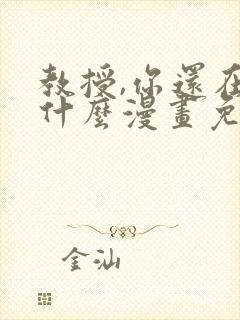 教授,你還在
什麼漫畫免
金汕